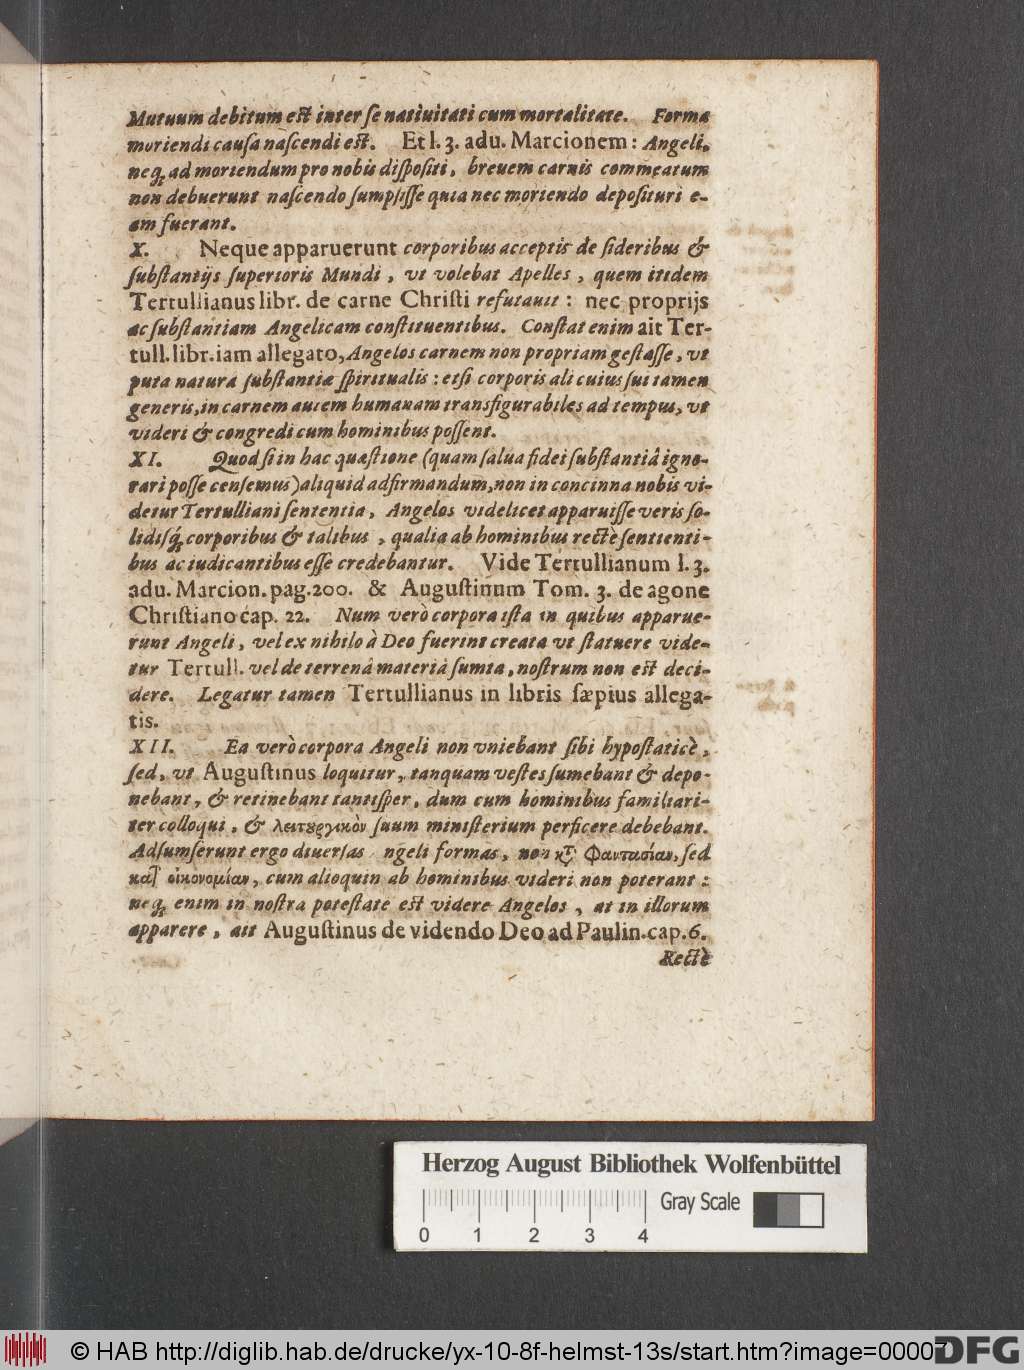 Mutuum debitum est inter se natiuitati cum mortalitate. Forma
moriendi causa nascendi est. Et l. 3. adu. Marcionem: Angeli,
neq; ad moriendum pro nobis dispositi, breuem carnis commeatum
non debuerunt nascendo sumpsisse quia nec moriendo deposituri e-
am fuerant.
X. Neque apparuerunt corporibus acceptis de sideribus &
substantijs superioris Mundi, vt volebat Apelles, quem itidem
Tertullianus libr. de carne Christi refutauit: nec proprijs
ac substantiam Angelicam constituentibus. Constat enim ait Ter-
tull. libr. iam allegato, Angelos carnem non propriam gestasse, vt
puta natura substantiæ spiritualis: etsi corporis alicuius sui tamen
generis, in carnem autem humanam transfigurabiles ad tempus, vt
videri & congredi cum hominibus possent.
XI. Quod si in hac quæstione (quam salua fidei substantiâ igno-
rari posse censemus) aliquid adfirmandum, non in concinna nobis vi-
detur Tertulliani sententia, Angelos videlicet apparuisse veris so-
lidisq; corporibus & talibus, qualia ab hominibus rectè sentienti-
bus ac iudicantibus esse credebantur. Vide Tertullianum l. 3.
adu. Marcion. pag. 200. & Augustinum Tom. 3. de agone
Christiano cap. 22. Num verò corpora ista in quibus apparue-
runt Angeli, vel ex nihilo à Deo fuerint creata vt statuere vide-
tur Tertull. vel de terrenâ materiâ sumta, nostrum non est deci-
dere. Legatur tamen Tertullianus in libris sæpius allega-
tis.
XII. Ea verò corpora Angeli non vniebant sibi hypostaticè,
sed, vt Augustinus loquitur, tanquam vestes sumebant & depo-
nebant, & retinebant tantisper, dum cum hominibus familiari-
ter colloqui, & λειτȣργικὸν suum ministerium perficere debebant.
Adsumserunt ergo diuersas ngeli formas, non κτ̀ Φαντασίαν, sed
κατ̓ οἰκονομίαν, cum alioquin ab hominibus videri non poterant:
neq; enim in nostra potestate est videre Angelos, at in illorum
apparere, ait Augustinus de videndo Deo ad Paulin. cap. 6.
Rectè
Herzog August Bibliothek Wolfenbüttel
0 1 2 3 4 Gray Scale
© HAB http://diglib.hab.de/drucke/yx-10-8f-helmst-13s/start.htm?image=00007
DFG